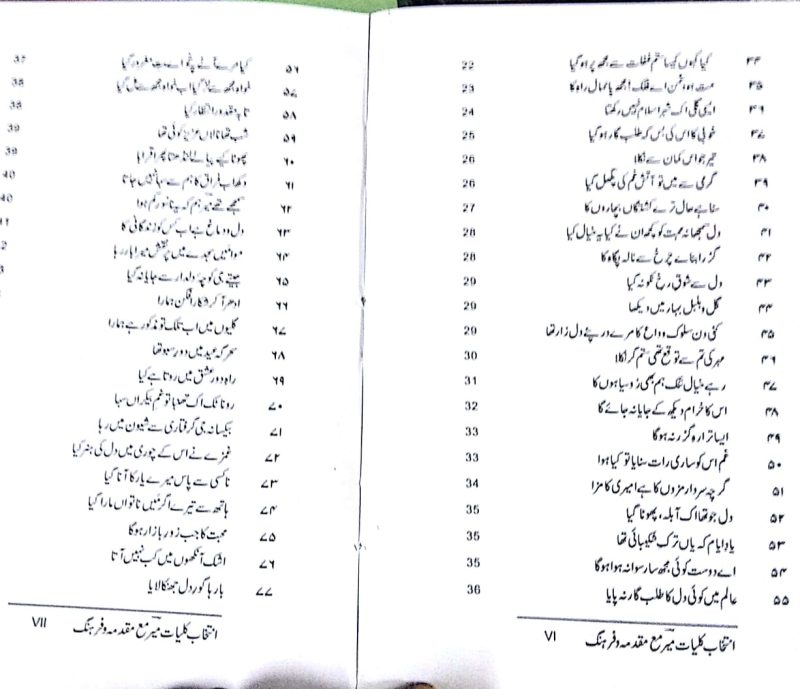 ۳۴ کیا کہوں کیسا ستم غفلت سے مجھ پر ہو گیا 22
۳۵ مت ہو دشمن اے فلک! مجھ پائمال راہ کا 23
۳۶ ایسی گلی اک شہر اسلام نہیں رکھتا 24
۳۷ خوبی کا اس کی بس کہ طلب گار ہو گیا 25
۳۸ تیر جو اس کمان سے نکلا 26
۳۹ گرمی سے میں تو آتش غم کی پگھل گیا 26
۴۰ سنا ہے حال ترے کشتگاں بچاروں کا 27
۴۱ دل سمجھا نہ محبت کو کچھ ان نے کیا یہ خیال کیا 28
۴۲ گزرا بنائے چرخ سے نالہ پگاہ کا 28
۴۳ دل سے شوق رخ نکو نہ گیا 29
۴۴ گل و بلبل بہار میں دیکھا 29
۴۵ کئی دن سلوک وداع کا مرے درپئے دل زار تھا 29
۴۶ مہر کی تم سے توقع تھی ستم گر نکلا 30
۴۷ رہے خیال تنک ہم بھی رو سیاہوں کا 31
۴۸ اس کا خرام دیکھ کے جایا نہ جائے گا 32
۴۹ ایسا ترا رہ گزر نہ ہوگا 33
۵۰ غم اس کو ساری رات سنایا تو کیا ہوا 33
۵۱ گرچہ سردار مزوں کا ہے امیری کا مزا 34
۵۲ دل جو تھا اک آبلہ، پھوٹا گیا 35
۵۳ یاد ایام کہ یاں ترک شکیبائی تھا 35
۵۴ اے دوست کوئی مجھ سا رسوا نہ ہوا ہوگا 35
۵۵ عالم میں کوئی دل کا طلب گار نہ پایا 36
انتخاب کلیات میر مع مقدمہ و فرہنگ VI
۵۶ 37
۵۷ خواہ مجھ سے لڑ گیا اب خواہ مجھ سے مل گیا 38
۵۸ تا بہ مقدور انتظار کیا 38
۵۹ شب تھا نالاں عزیز کوئی تھا 39
۶۰ 39
۶۱ دکھ اب فراق کا ہم سے سہا نہیں جاتا 40
۶۲ سمجھے تھے میر ہم کہ یہ ناسور کم ہوا 40
۶۳ دل و دماغ ہے اب کس کو زندگانی کا
۶۴ موا میں سجدے میں پر نقش میرا بار رہا
۶۵ جیتے جی کوچۂ دلدار سے جایا نہ گیا
۶۶ ادھر آ کر شکار افگن ہمارا
۶۷ گلیوں میں اب تلک تو مذکور ہے ہمارا
۶۸ سحر گہ عید میں دور سبو تھا
۶۹ راہ دور عشق میں روتا ہے کیا
۷۰ رونا ٹک اک تھما تو غم بیکراں سہا
۷۱ بیکسانہ جی گرفتاری سے شیون میں رہا
۷۲ غمزے نے اس کے چوری میں دل کی ہنر کیا
۷۳ ناکسی سے پاس میرے یار کا آنا گیا
۷۴ ہاتھ سے تیرے اگر میں ناتواں مارا گیا
۷۵ محبت کا جب زور بازار ہوگا
۷۶ اشک آنکھوں میں کب نہیں آتا
۷۷ بار ہا گور دل جھنکا لایا
انتخاب کلیات میر مع مقدمہ و فرہنگ VII